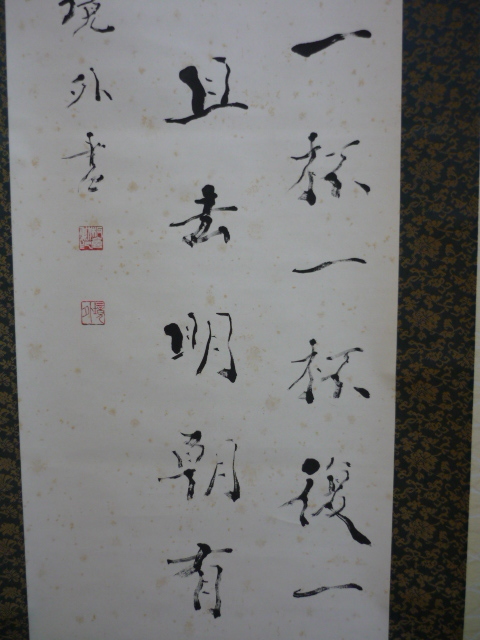 一杯一杯復一
且去明朝有
外